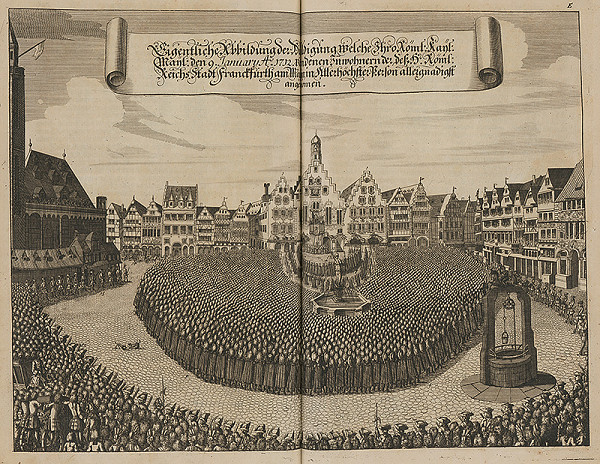 E
Eigentliche Abbildung der Huldigung welche Ihro Röml: Kayl:
Mayt: den 9. January Aº 1712 von denen Inwohnern der deß H. Röml:
Reichs Stadt Franckfurth am Mayn in Allerhöchster Person allergnädigst
angenomen.